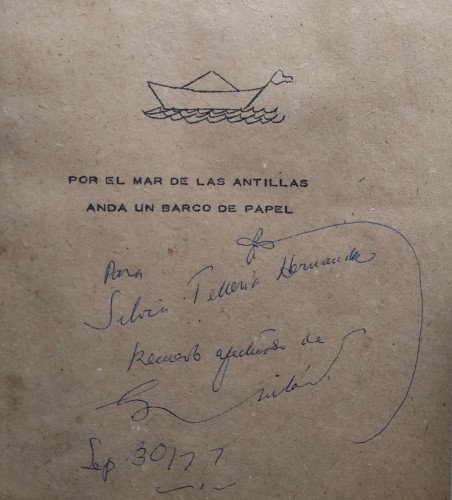 POR EL MAR DE LAS ANTILLAS
ANDA UN BARCO DE PAPEL
Para
Silvia Tellería Hernández
Recuerdo afectuoso de
Guillén
Sep. 30/77